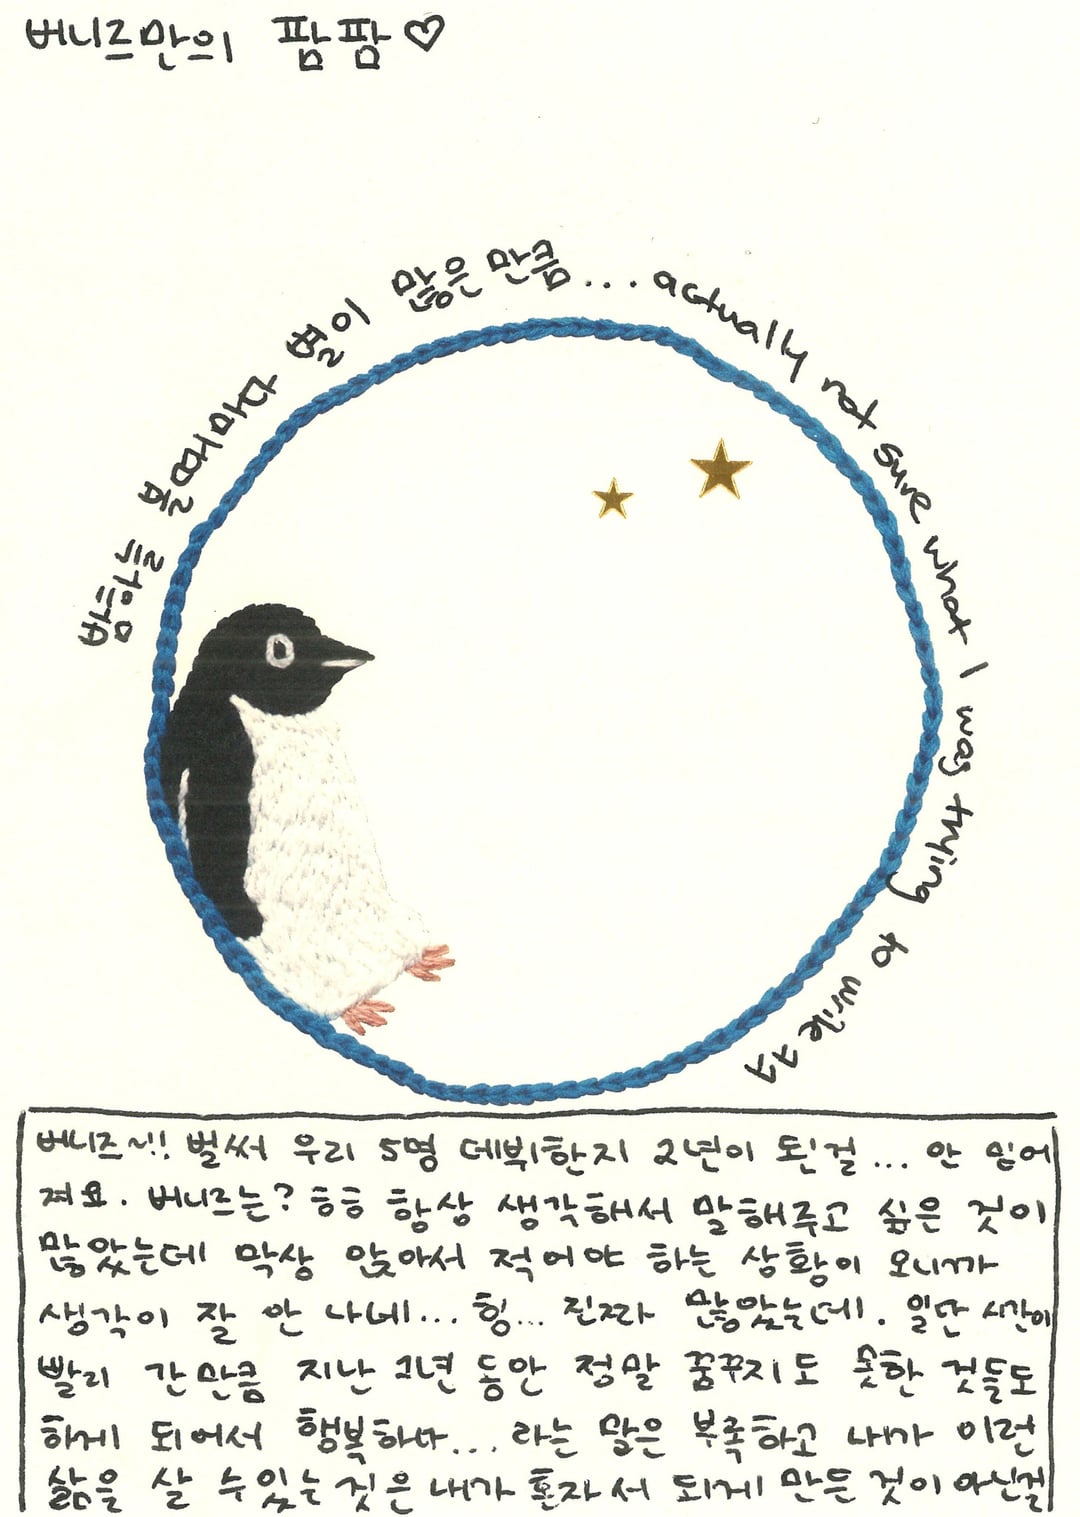 버니즈만의 팜팜♡
밤하늘 볼때마다 별이 많은 만큼... actually not sure what I was trying to write ㅋㅋ
버니즈~!! 벌써 우리 5명 데뷔한지 2년이 된걸... 안 믿어
져요. 버니즈는? 흠흠 항상 생각해서 말해주고 싶은 것이
많았는데 막상 앉아서 적어야 하는 상황이 오니까
생각이 잘 안 나네... 힝... 진짜 많았는데. 일단 시간이
빨리 간만큼 지난 2년 동안 정말 꿈꾸지도 못한 것들도
하게 되어서 행복하다... 라는 말은 부족하고 내가 이런
삶을 살 수있는 것은 내가 혼자서 되게 만든 것이 아닌걸